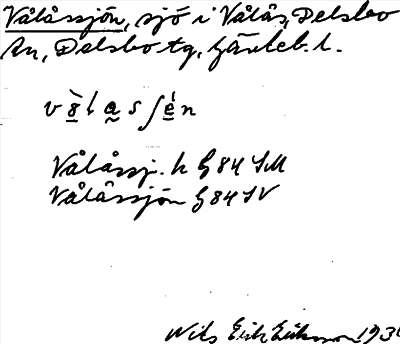 Vålåssjön, sjö i Vålås, Delsbo
sn, Delsbo tg, Gävleb. l.
Vålåssj. h G 84 SM
Vålåssjön G 84 SV
Nils Erik Eriksson 193